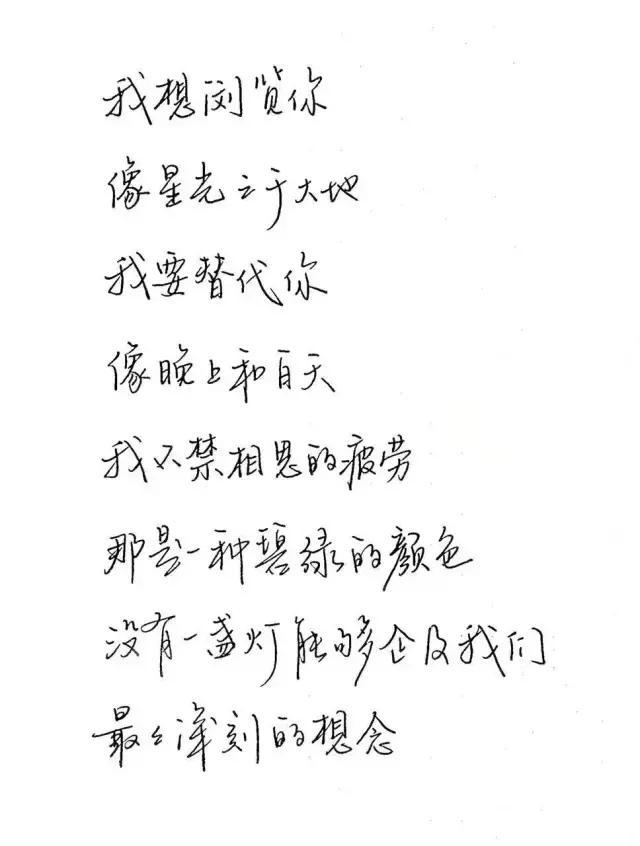 我想浏览你
像星光之于大地
我要替代你
像晚上和白天
我不禁相思的疲劳
那是一种碧绿的颜色
没有一盏灯能够企及我们
最最深刻的想念